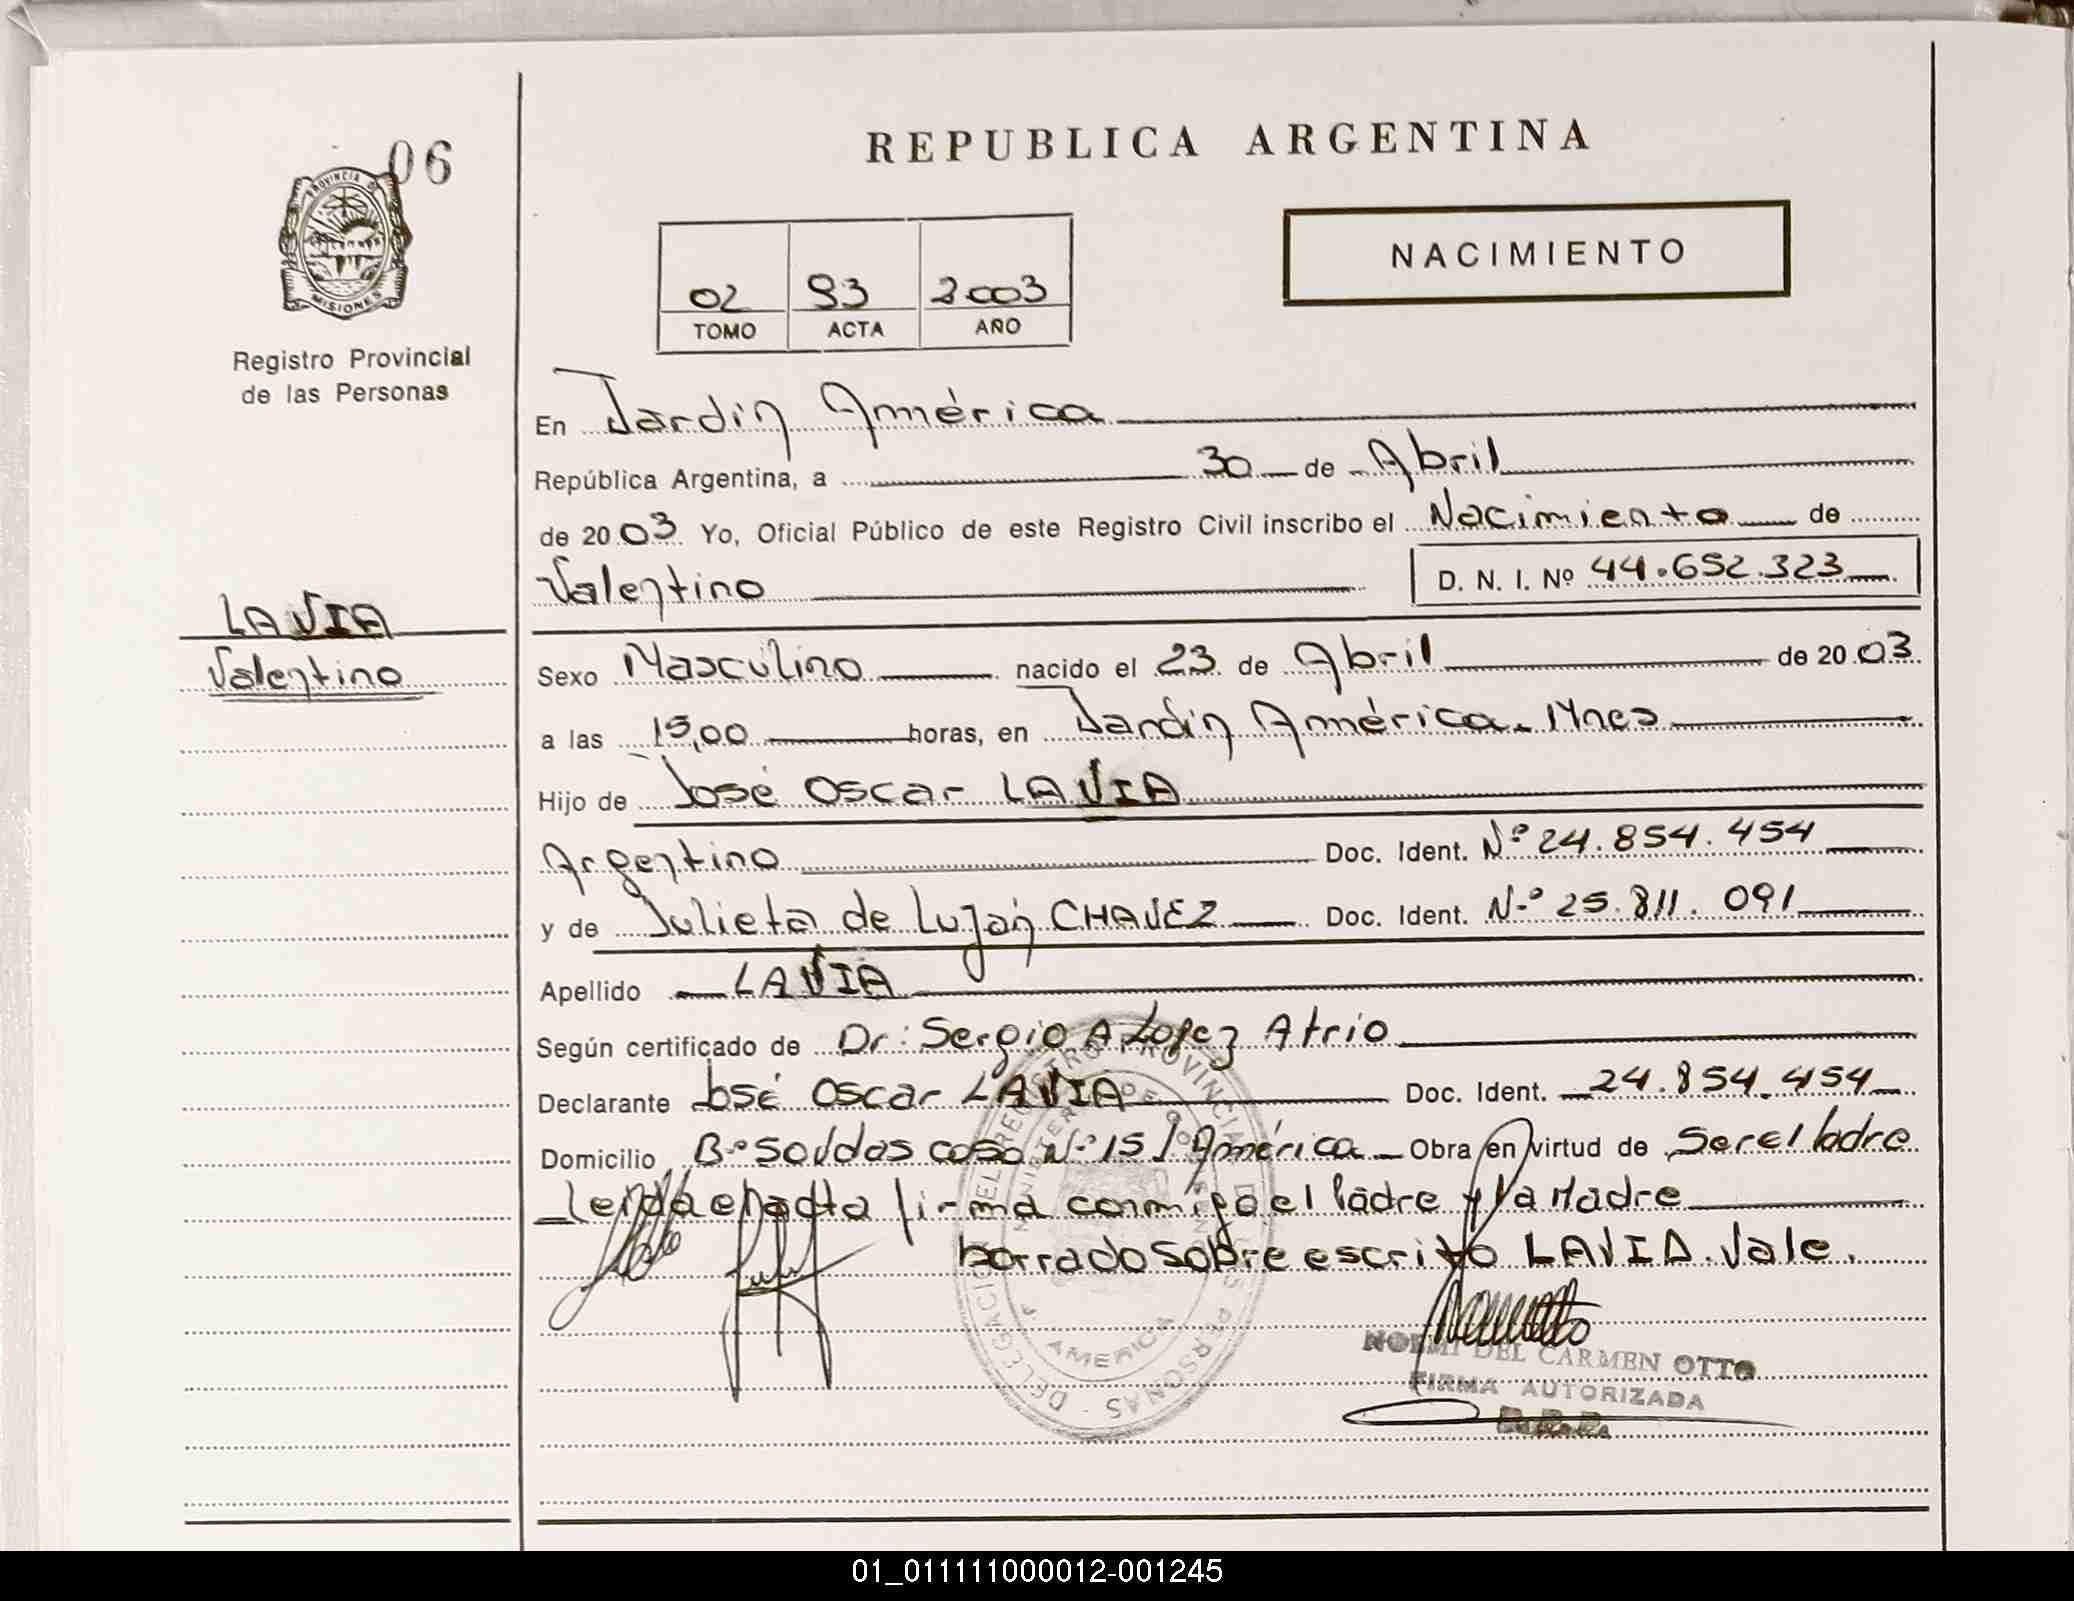 06
PROVINCIA DE
MISIONES
Registro Provincial
de las Personas
REPUBLICA ARGENTINA
NACIMIENTO
02 93 2003
TOMO ACTA AÑO
En Jardín América
República Argentina, a 30 de Abril
de 2003 Yo, Oficial Público de este Registro Civil inscribo el Nacimiento de
Valentino D. N. I. Nº 44.652.323
LAVIA
Valentino
Sexo Masculino nacido el 23 de Abril de 2003
a las 15,00 horas, en Jardín América. Mnes
Hijo de José Oscar LAVIA
Argentino Doc. Ident. Nº 24.854.454
y de Julieta de Luján CHAVEZ Doc. Ident. Nº 25.811.091
Apellido LAVIA
Según certificado de Dr: Sergio A. Lopez Atrio
Declarante José Oscar LAVIA Doc. Ident. 24.854.454
Domicilio Bº Soldas casa Nº 15 J América Obra en virtud de ser el Padre
leída el acta firma conmigo el Padre y la Madre
borrado sobre escrito LAVIA. Vale.
DELEGACION DEL REGISTRO PROVINCIAL DE LAS PERSONAS
MINISTERIO DE GOBIERNO
J. AMERICA
NOEMI DEL CARMEN OTTO
FIRMA AUTORIZADA
01_011111000012-001245